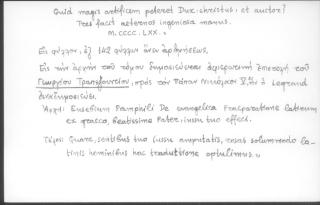 Quid magis artificem peteret Dux, christus, et auctor?
Tres facit aeternos ingeniosa manus.
M.CCCC.LXX.
Εἰς φύλλον, ἐξ 142 φύλλων ἄνευ ἀριθμήσεως.
Εἰς τὴν ἀρχὴν τοῦ τόμου δημοσιεύεται ἀφιερωτικὴ ἐπιστολὴ τοῦ
Γεωργίου Τραπεζουντίου, πρὸς τὸν Πάπαν Νικόλαον V, ἣν ὁ Legrand
Ἀρχή: Eusebium Pamphili De evangelica Praeparatione latinum
ex graeco, Beatissime Pater, iussu tuo effeci.
Τέλος: Quare, sentibus tuo iussu amputatis, rosas solummodo la-
tinis hominibus hac traductione optulimus.